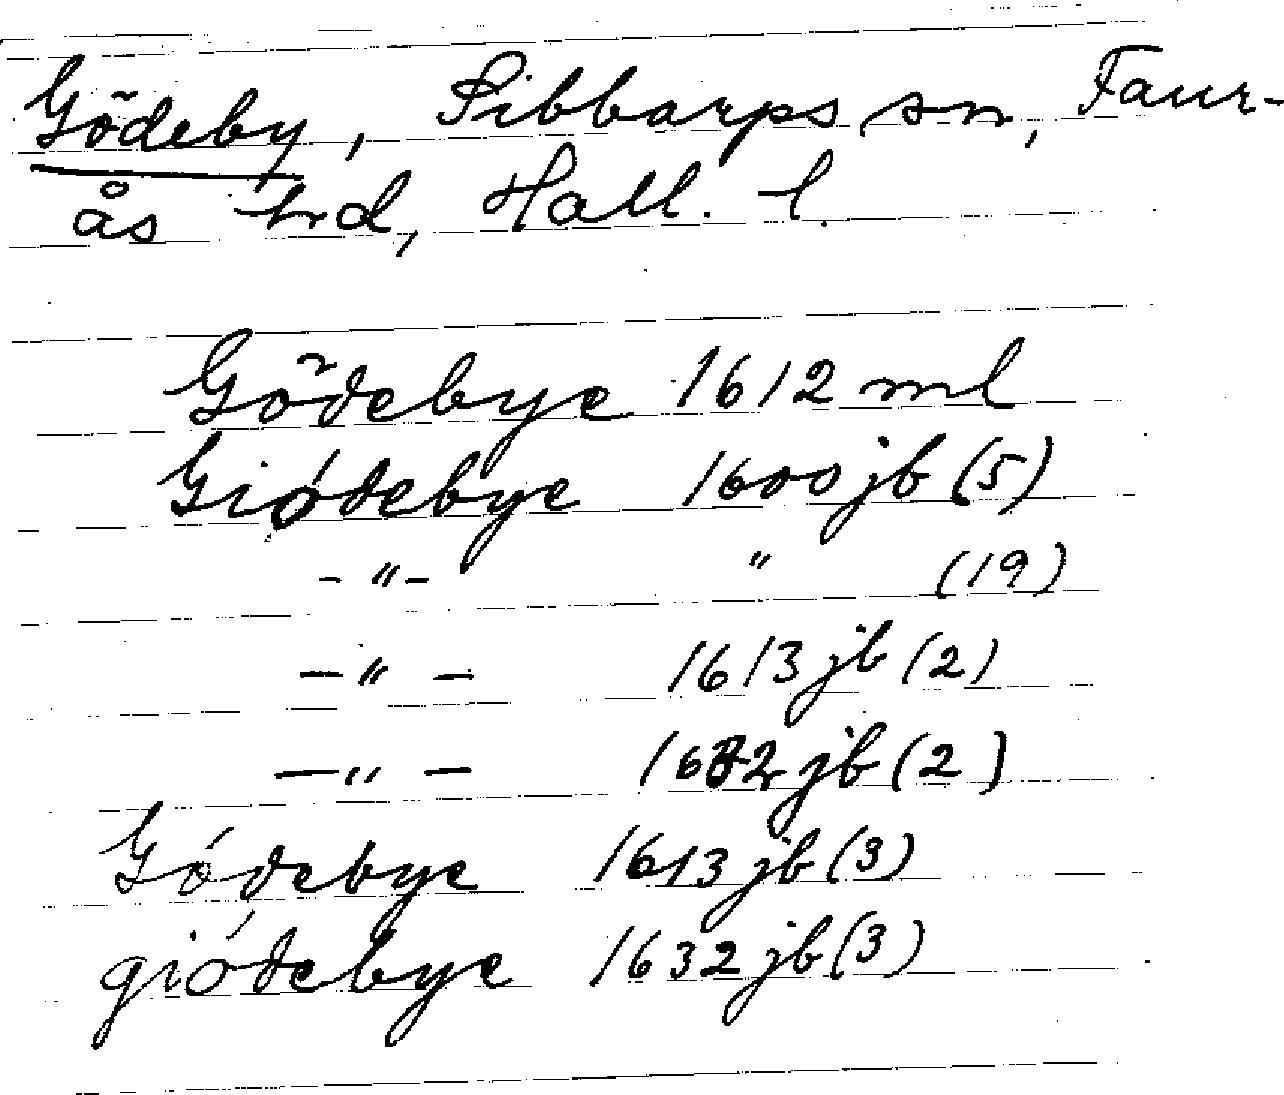 Gödeby, Sibbarps sn, Faur-
ås hd, Hall. l.
Gödebye 1612 ml
Giódebye 1600 jb (5)
-"- " (19)
-"- 1613 jb (2)
-"- jb (2)
Gódebye 1613 jb (3)
giódebye 1632 jb (3)